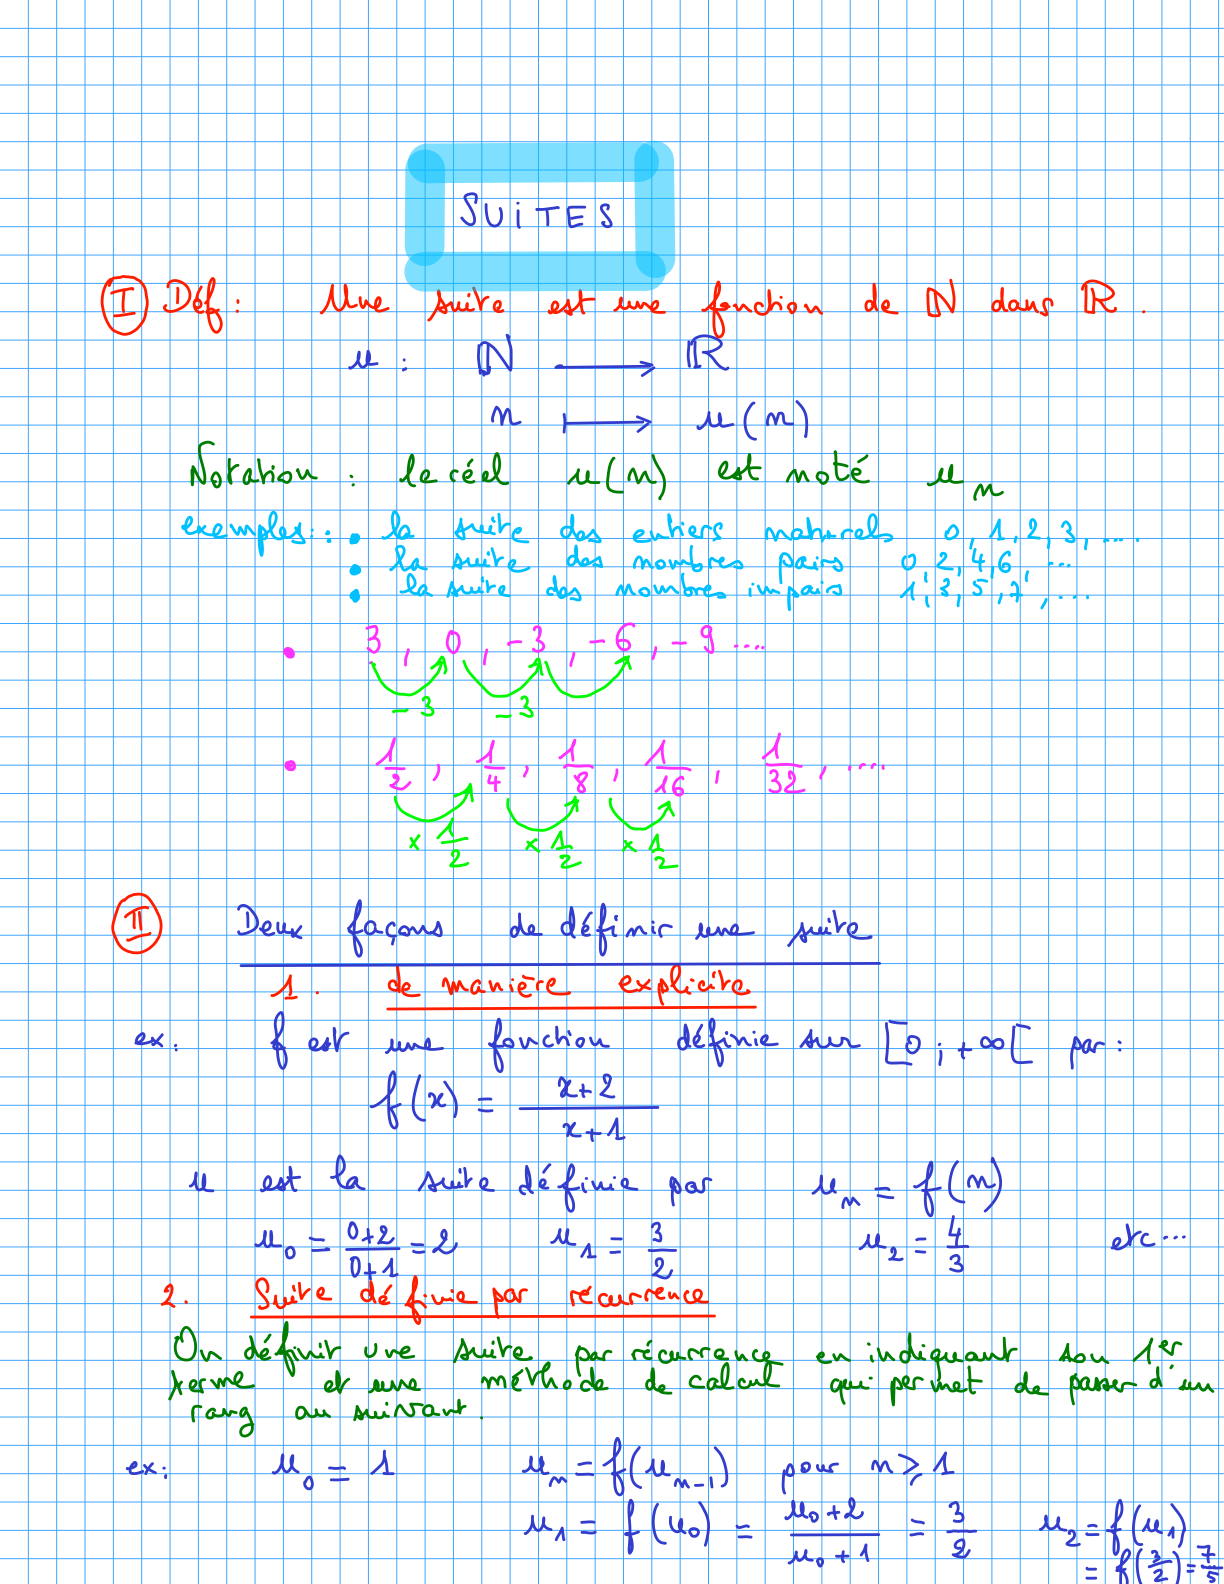 SUITES
I Déf : Une suite est une fonction de ℕ dans ℝ.
u : ℕ ⟶ ℝ
n ⟼ u(n)
Notation : le réel u(n) est noté uₙ
exemples : : • la suite des entiers naturels 0, 1, 2, 3, ....
• la suite des nombres pairs 0, 2, 4, 6, ...
• la suite des nombres impairs 1, 3, 5, 7, ...
• 3, 0, -3, -6, -9 ....
-3 -3
• 1/2, 1/4, 1/8, 1/16, 1/32, ....
× 1/2 × 1/2 × 1/2
II Deux façons de définir une suite
1. de manière explicite
ex. f est une fonction définie sur [0 ; +∞[ par :
f(x) = (x+2)/(x+1)
u est la suite définie par uₙ = f(n)
u₀ = (0+2)/(0+1) = 2 u₁ = 3/2 u₂ = 4/3 etc...
2. Suite définie par récurrence
On définit une suite par récurrence en indiquant son 1er
terme et une méthode de calcul qui permet de passer d'un
rang au suivant.
ex : u₀ = 1 uₙ = f(uₙ₋₁) pour n ⩾ 1
u₁ = f(u₀) = (u₀+2)/(u₀+1) = 3/2 u₂ = f(u₁)
= f(3/2) = 7/5